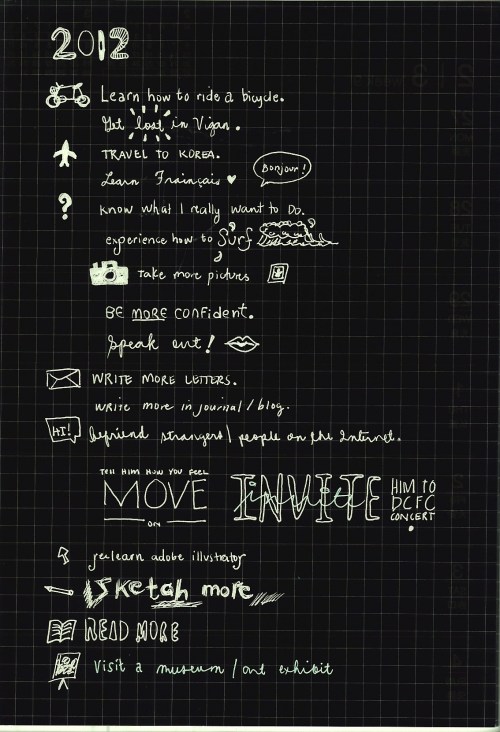 2012
Learn how to ride a bicycle.
Get lost in Vigan.
TRAVEL TO KOREA.
Learn Frainçais ♥
Bonjour!
know what I really want to Do.
experience how to Surf
take more pictures
BE MORE confident.
Speak out!
WRITE MORE LETTERS.
write more in journal / blog.
HI!
befriend strangers \ people on the Internet.
TELL HIM HOW YOU FEEL
MOVE
ON
INVITE
HIM TO
DCFC
CONCERT
relearn adobe illustrator
Sketch more
READ MORE
Visit a museum / art exhibit